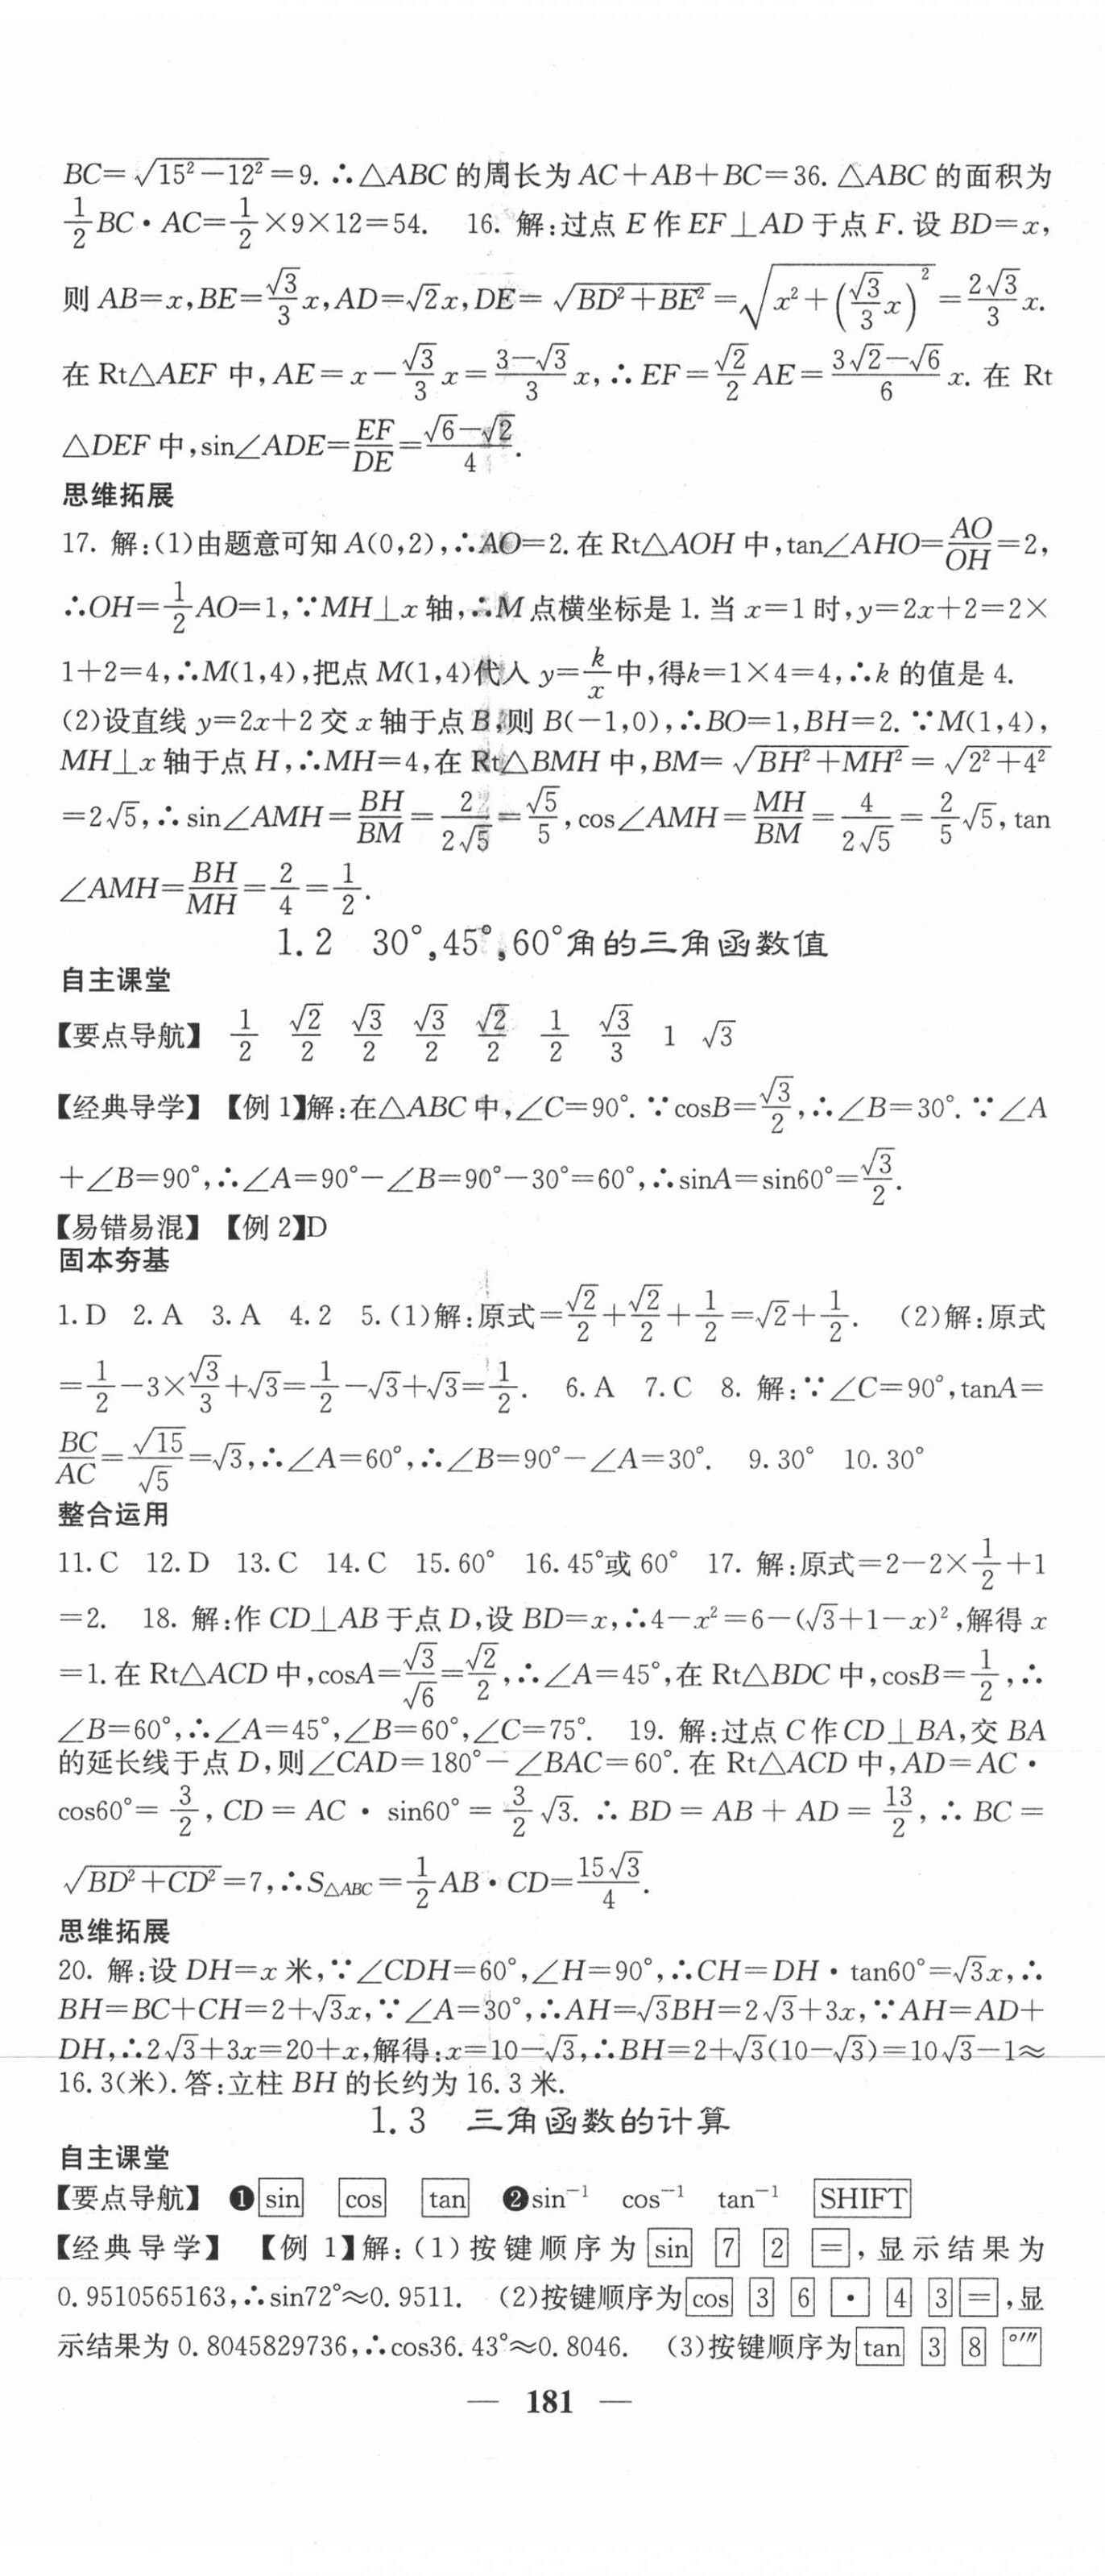 BC=√(15²-12²)=9.∴△ABC的周长为AC+AB+BC=36.△ABC的面积为
1/2 BC·AC=1/2×9×12=54. 16. 解:过点E作EF⊥AD于点F.设BD=x,
则AB=x,BE=√3/3 x,AD=√2x,DE=√(BD²+BE²)=√(x²+(√3/3 x)²)=2√3/3 x.
在Rt△AEF中,AE=x-√3/3 x=(3-√3)/3 x,∴EF=√2/2 AE=(3√2-√6)/6 x.在Rt
△DEF中,sin∠ADE=EF/DE=(√6-√2)/4.
思维拓展
17. 解:(1)由题意可知A(0,2),∴AO=2.在Rt△AOH中,tan∠AHO=AO/OH=2,
∴OH=1/2 AO=1,∵MH⊥x轴,∴M点横坐标是1.当x=1时,y=2x+2=2×
1+2=4,∴M(1,4),把点M(1,4)代入y=k/x中,得k=1×4=4,∴k的值是4.
(2)设直线y=2x+2交x轴于点B,则B(-1,0),∴BO=1,BH=2.∵M(1,4),
MH⊥x轴于点H,∴MH=4,在Rt△BMH中,BM=√(BH²+MH²)=√(2²+4²)
=2√5,∴sin∠AMH=BH/BM=2/(2√5)=√5/5,cos∠AMH=MH/BM=4/(2√5)=2/5 √5,tan
∠AMH=BH/MH=2/4=1/2.
1.2 30°,45°,60°角的三角函数值
自主课堂
【要点导航】 1/2 √2/2 √3/2 √3/2 √2/2 1/2 √3/3 1 √3
【经典导学】【例1】解:在△ABC中,∠C=90°.∵cosB=√3/2,∴∠B=30°.∵∠A
+∠B=90°,∴∠A=90°-∠B=90°-30°=60°,∴sinA=sin60°=√3/2.
【易错易混】【例2】D
固本夯基
1.D 2.A 3.A 4.2 5.(1)解:原式=√2/2+√2/2+1/2=√2+1/2. (2)解:原式
=1/2-3×√3/3+√3=1/2-√3+√3=1/2. 6.A 7.C 8. 解:∵∠C=90°,tanA=
BC/AC=√15/√5=√3,∴∠A=60°,∴∠B=90°-∠A=30°. 9.30° 10.30°
整合运用
11.C 12.D 13.C 14.C 15.60° 16.45°或60° 17. 解:原式=2-2×1/2+1
=2. 18. 解:作CD⊥AB于点D,设BD=x,∴4-x²=6-(√3+1-x)²,解得x
=1.在Rt△ACD中,cosA=√3/√6=√2/2,∴∠A=45°,在Rt△BDC中,cosB=1/2,∴
∠B=60°,∴∠A=45°,∠B=60°,∠C=75°. 19. 解:过点C作CD⊥BA,交BA
的延长线于点D,则∠CAD=180°-∠BAC=60°.在Rt△ACD中,AD=AC·
cos60°=3/2,CD=AC·sin60°=3/2 √3.∴BD=AB+AD=13/2,∴BC=
√(BD²+CD²)=7,∴S△ABC=1/2 AB·CD=15√3/4.
思维拓展
20. 解:设DH=x米,∵∠CDH=60°,∠H=90°,∴CH=DH·tan60°=√3x,∴
BH=BC+CH=2+√3x,∵∠A=30°,∴AH=√3BH=2√3+3x,∵AH=AD+
DH,∴2√3+3x=20+x,解得:x=10-√3,∴BH=2+√3(10-√3)=10√3-1≈
16.3(米).答:立柱BH的长约为16.3米.
1.3 三角函数的计算
自主课堂
【要点导航】 ❶sin cos tan ❷sin⁻¹ cos⁻¹ tan⁻¹ SHIFT
【经典导学】【例1】解:(1)按键顺序为 sin 7 2 =,显示结果为
0.9510565163,∴sin72°≈0.9511. (2)按键顺序为 cos 3 6 · 4 3 =,显
示结果为0.8045829736,∴cos36.43°≈0.8046. (3)按键顺序为 tan 3 8 °′″
— 181 —